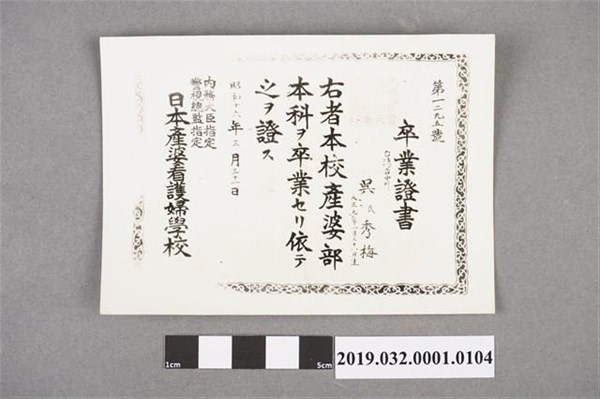 第一二九五號
卒業證書
吳氏秀梅
右者本校產婆部
本科ヲ卒業セリ依テ
之ヲ證ス
昭和十六年三月三十一日
內務大臣指定
警視總監指定
日本產婆看護婦學校
1cm
5cm
2019.032.0001.0104